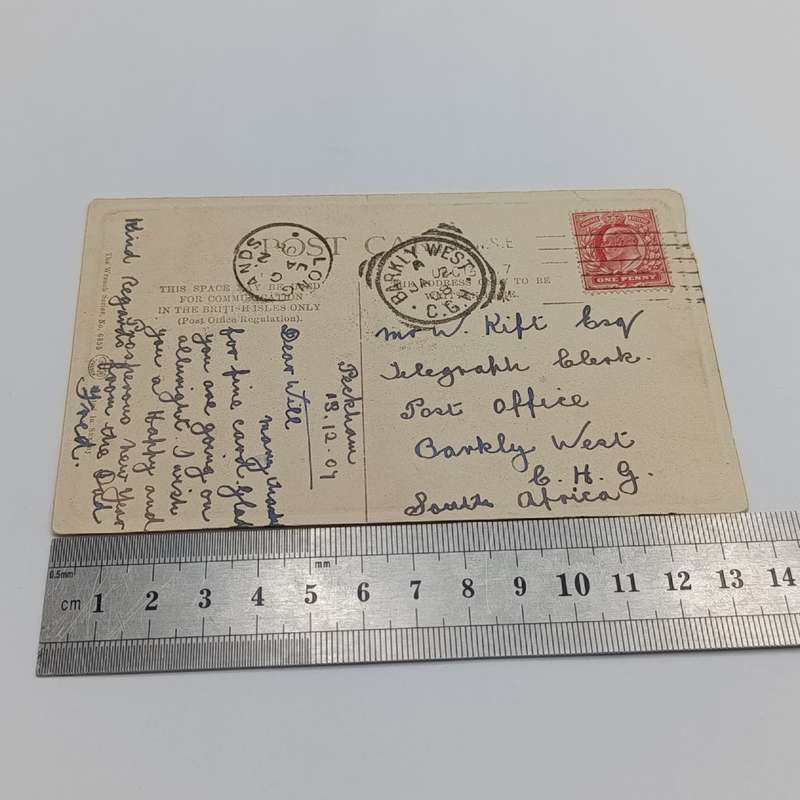 POST CARD
THIS SPACE MAY BE USED
FOR COMMUNICATION
IN THE BRITISH ISLES ONLY
(Post Office Regulation).
THE ADDRESS ONLY TO BE
S.E
LONG
LANDS
BARKLY WEST
C.G.H
ONE PENNY
Peckham
18.12.04
Dear Will
many thanks
for fine card glad
you are going on
allright. I wish
you a Happy and
Prosperous New Year
Kind Regards from the Dad
Fred.
Mr W. Kift Esq
Telegraph Clerk.
Post Office
Barkly West
C. H. G.
South Africa
The Wrench Series, No.
0.5mm
mm
cm 1 2 3 4 5 6 7 8 9 10 11 12 13 14